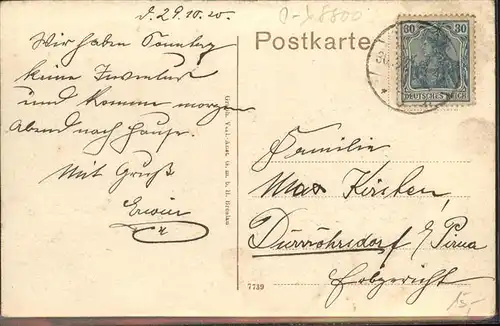 d. 29.10.20.
Wir haben Sonntag
keine Inventur
und komme morgen
Abend nach Hause.
Mit Gruß
Erwin
Postkarte
30 30
DEUTSCHES REICH
Familie
Max Kirsten
Dürröhrsdorf b/ Pirna
Erbgericht
7739
15,-